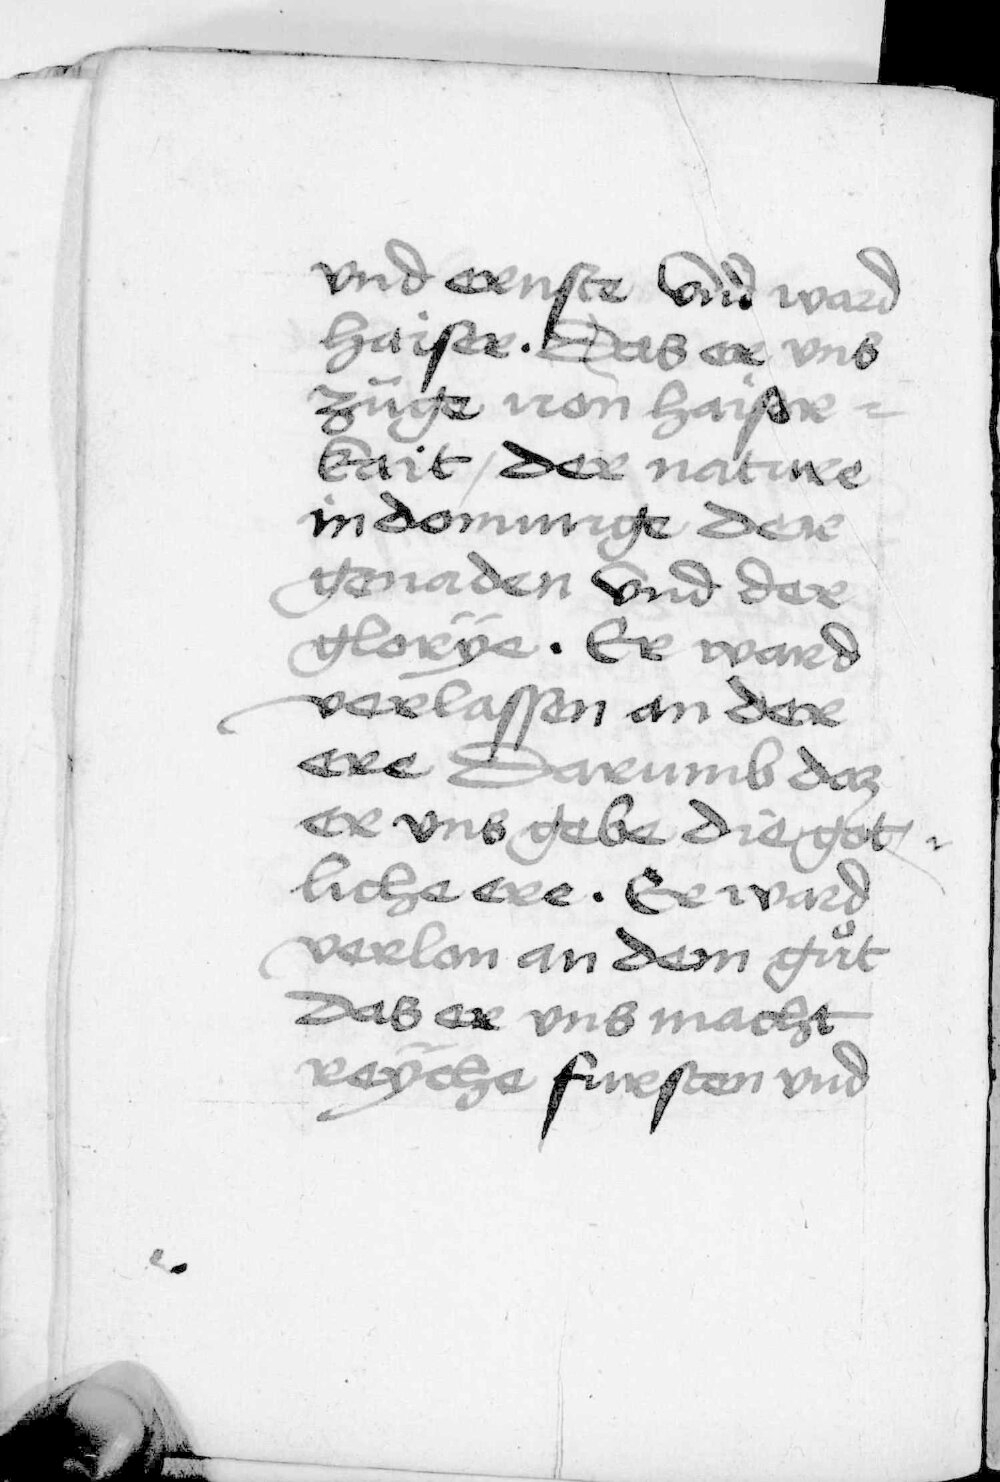 vnd ernste vnd ward
haiser. Das er vns
züge von haiser=
kait / der nature
in domunge der
genaden vnd der
glorÿe. Er ward
verlassen an der
ere Darumb daz
er vns gebe die got=
liche ere. Er ward
verlon an dem gůt
Das er vns macht
reÿche fursten vnd